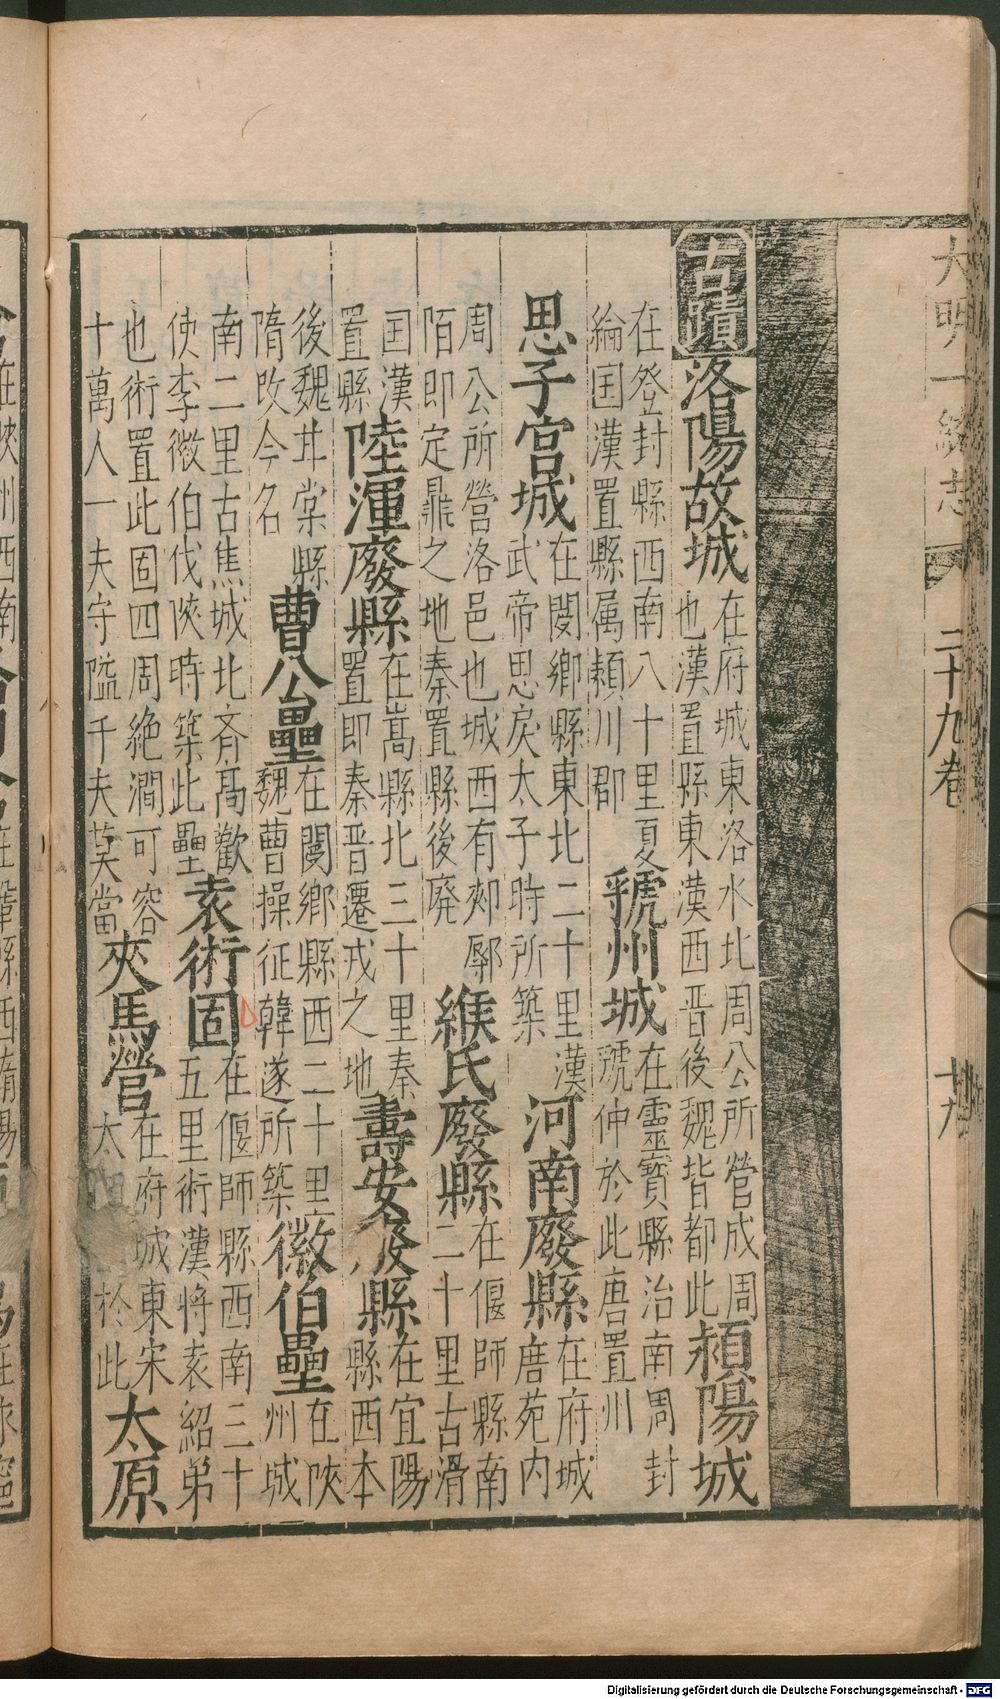 大明一統志 二十九卷
古蹟 洛陽故城 在府城東洛水北周公所營成周 也漢置縣東漢西晉後魏皆都此 頴陽城
在登封縣西南八十里夏 綸国漢置縣属頴川郡 虢州城 在靈寳縣治南周封 虢仲於此唐置州
思子宫城 在閿鄉縣東北二十里漢 武帝思戾太子時所築 河南廢縣 在府城 唐苑内
周公所營洛邑也城西有郟鄏 陌即定鼎之地秦置縣後廢 緱氏廢縣 在偃師縣南 二十里古滑
国漢 置縣 陸渾廢縣 在嵩縣北三十里秦 置即秦晋遷戎之地 壽安廢縣 在宜陽 縣西本
後魏甘棠縣 隋改今名 曹公壘 在閿鄉縣西二十里 魏曹操征韓遂所築 徽伯壘 在陝 州城
南二里古焦城北斉髙歡 使李徽伯伐陝時築此壘 袁術固 在偃師縣西南三十 五里術漢将袁紹弟
也術置此固四周絶澗可容 十萬人一夫守隘千夫莫當 夾馬營 在府城東宋 太 於此 太原
Digitalisierung gefördert durch die Deutsche Forschungsgemeinschaft - DFG